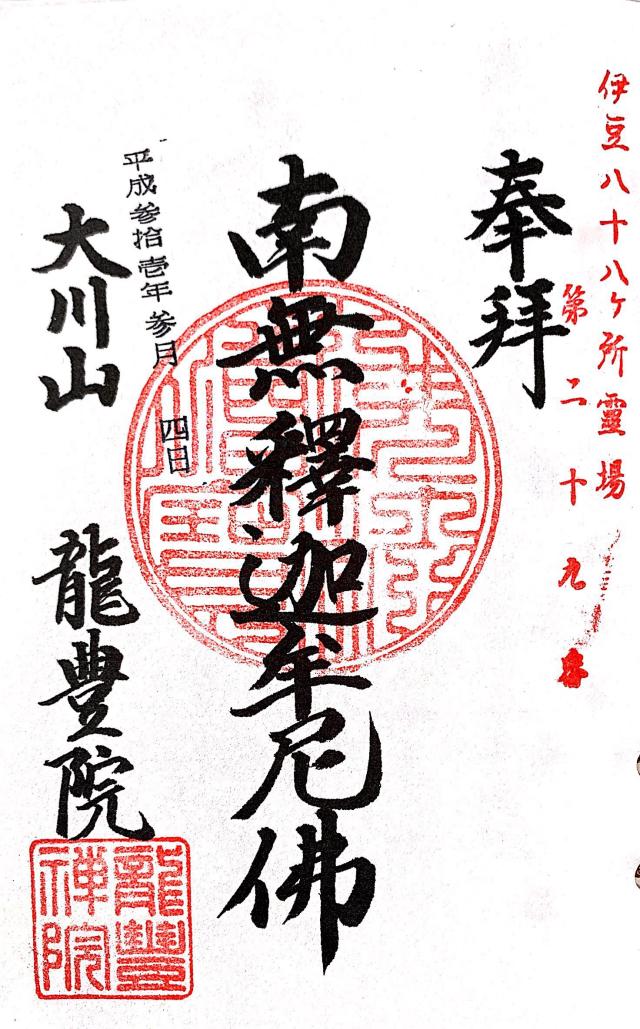 伊豆八十八ヶ所霊場
第二十九番
奉拜
南無釋迦牟尼佛
平成参拾壱年参月四日
大川山
龍豊院
龍豐禅院